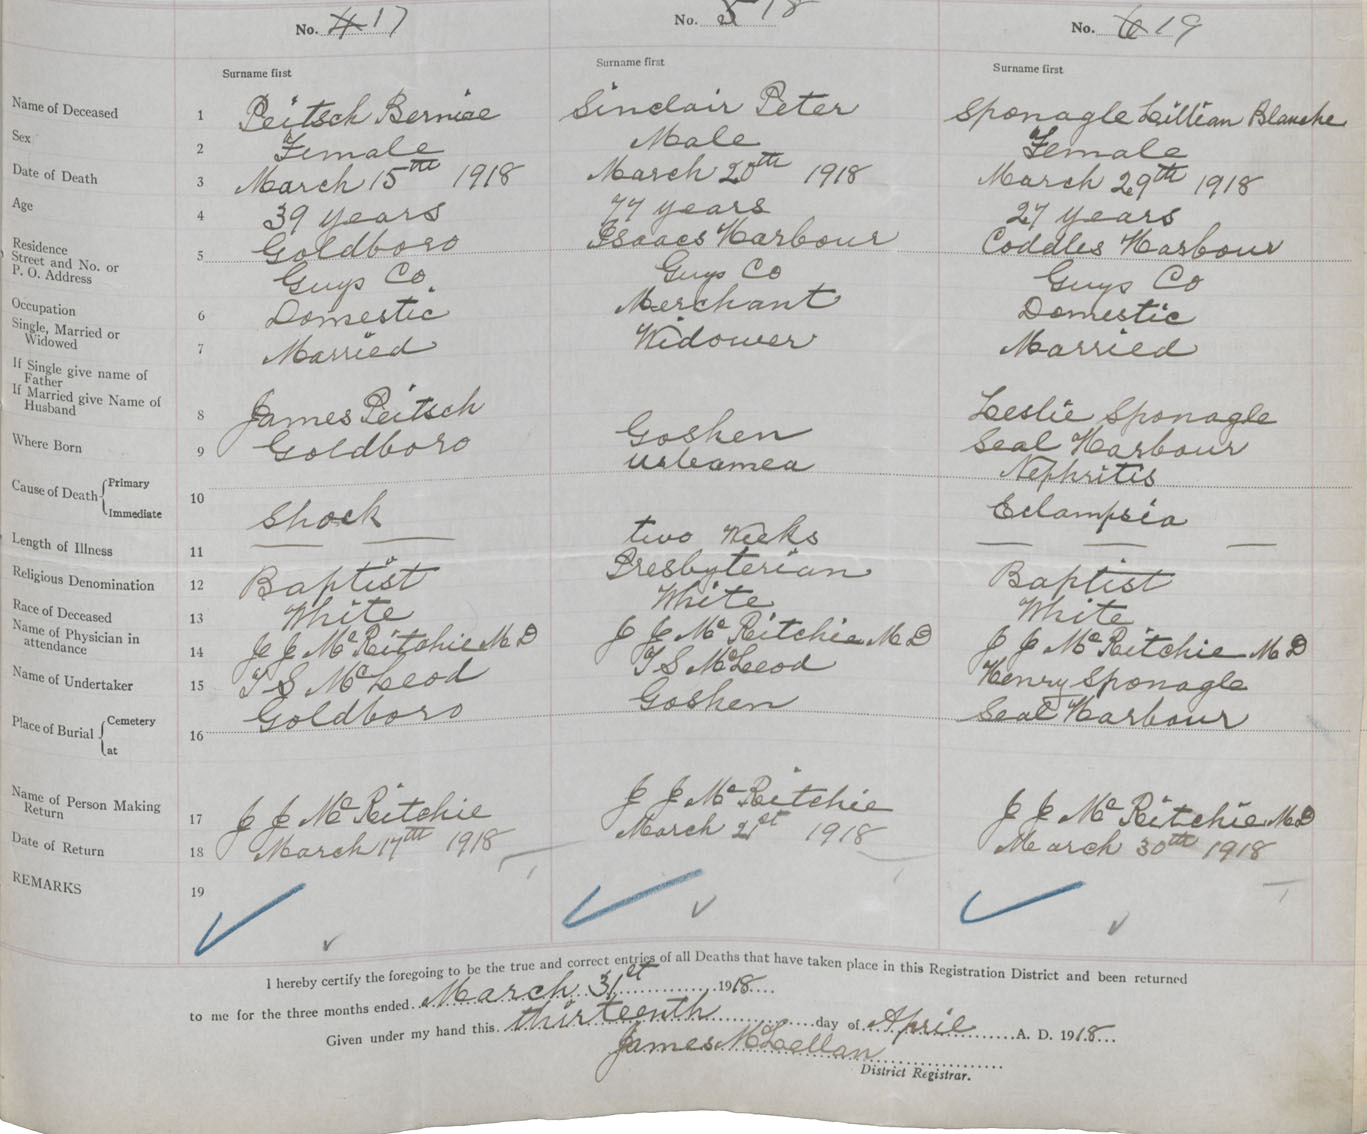 No. 4 17 No. 5 18 No. 6 19
Surname first Surname first Surname first
Name of Deceased 1 Peitsch Bernice Sinclair Peter Sponagle Lillian Blanche
Sex 2 Female Male Female
Date of Death 3 March 15th 1918 March 20th 1918 March 29th 1918
Age 4 39 years 77 years 27 years
Residence
Street and No. or
P. O. Address 5 Goldboro Isaacs Harbour Coddles Harbour
Guys Co. Guys Co Guys Co
Occupation 6 Domestic Merchant Domestic
Single, Married or
Widowed 7 Married Widower Married
If Single give name of
Father
If Married give Name of
Husband 8 James Peitsch Leslie Sponagle
Where Born 9 Goldboro Goshen Seal Harbour
Cause of Death Primary Uraemea Nephritis
Immediate 10 Shock Eclampsia
Length of Illness 11 — — two Weeks — — —
Religious Denomination 12 Baptist Presbyterian Baptist
Race of Deceased 13 White White White
Name of Physician in
attendance 14 J J McRitchie M D J J McRitchie M D J J McRitchie M D
Name of Undertaker 15 T S McLeod T S McLeod Henry Sponagle
Place of Burial Cemetery Goldboro Goshen Seal Harbour
at 16
Name of Person Making
Return 17 J J McRitchie J J McRitchie J J McRitchie M D
Date of Return 18 March 17th 1918 March 21st 1918 March 30th 1918
REMARKS 19
I hereby certify the foregoing to be the true and correct entries of all Deaths that have taken place in this Registration District and been returned
to me for the three months ended March 31st 1918
Given under my hand this thirteenth day of April A. D. 1918
James McLellan
District Registrar.